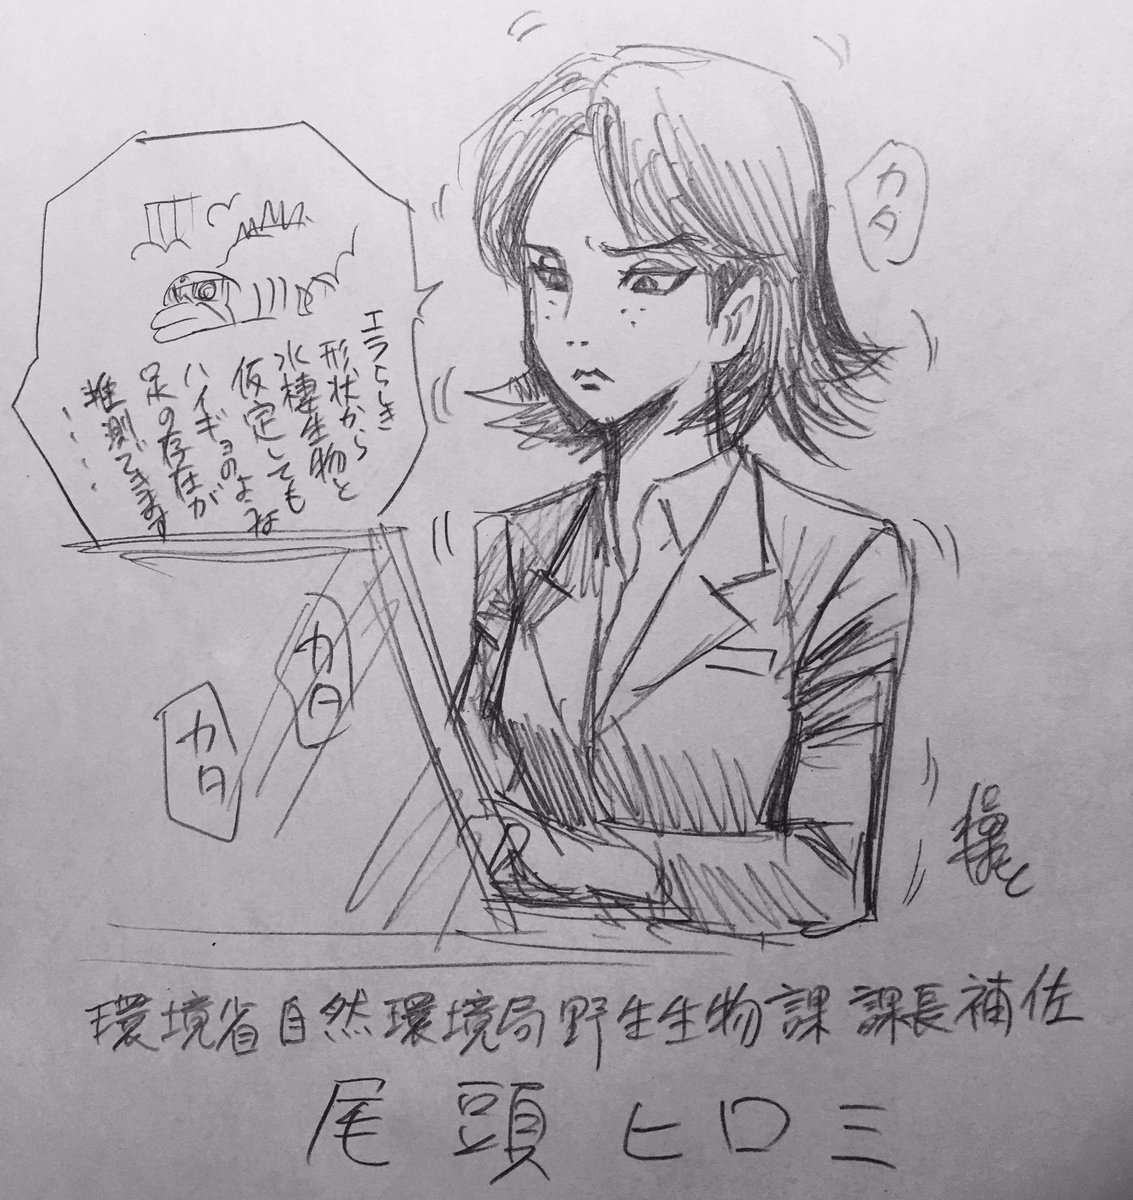 エラらしき
形状から
水棲生物と
仮定しても
ハイギョのような
足の存在が
推測できます
・・・・・
カタ
カタ
カタ
環境省自然環境局野生生物課 課長補佐
尾頭ヒロミ